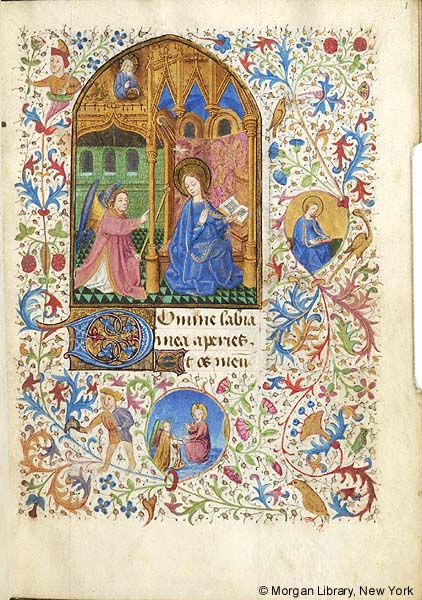 1
Domine labia
mea aperies.
Et os meu
© Morgan Library, New York